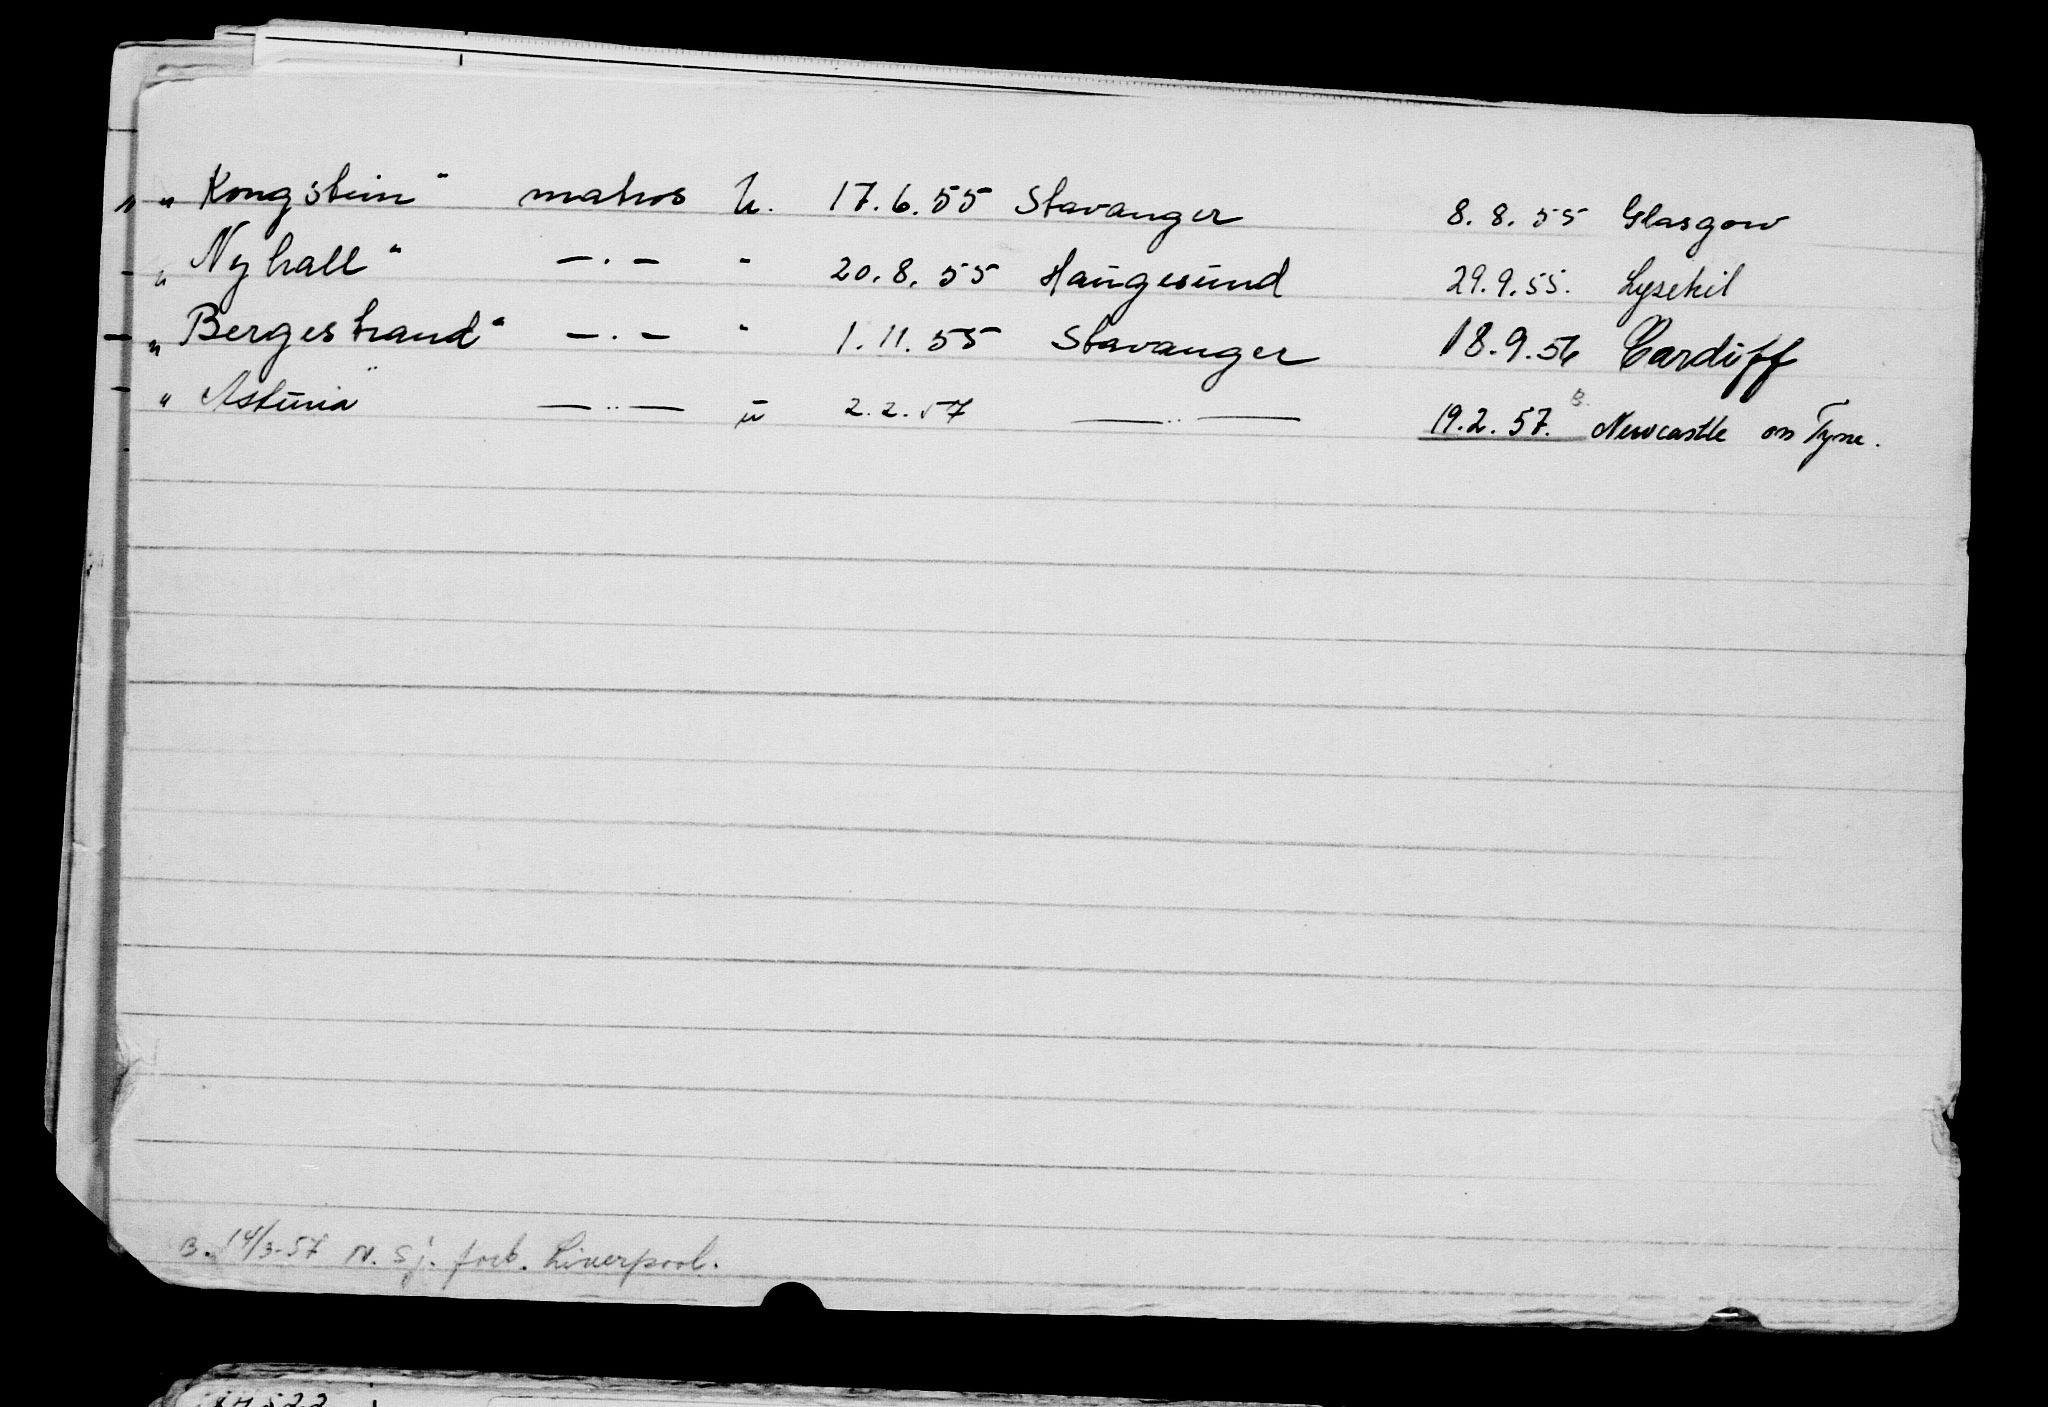 " " Kongstein" matros u. 17.6.55 Stavanger 8.8.55 Glasgow
- " Nyhall" —.— " 20.8.55 Haugesund 29.9.55. Lysekil
- " Bergestrand" —.— " 1.11.55 Stavanger 18.9.56 Cardiff
- " Asturia" —..— u 2.2.57 —..— 19.2.57. B. Newcastle on Tyne.
B. 14/3-57 N. Sj. forb. Liverpool.